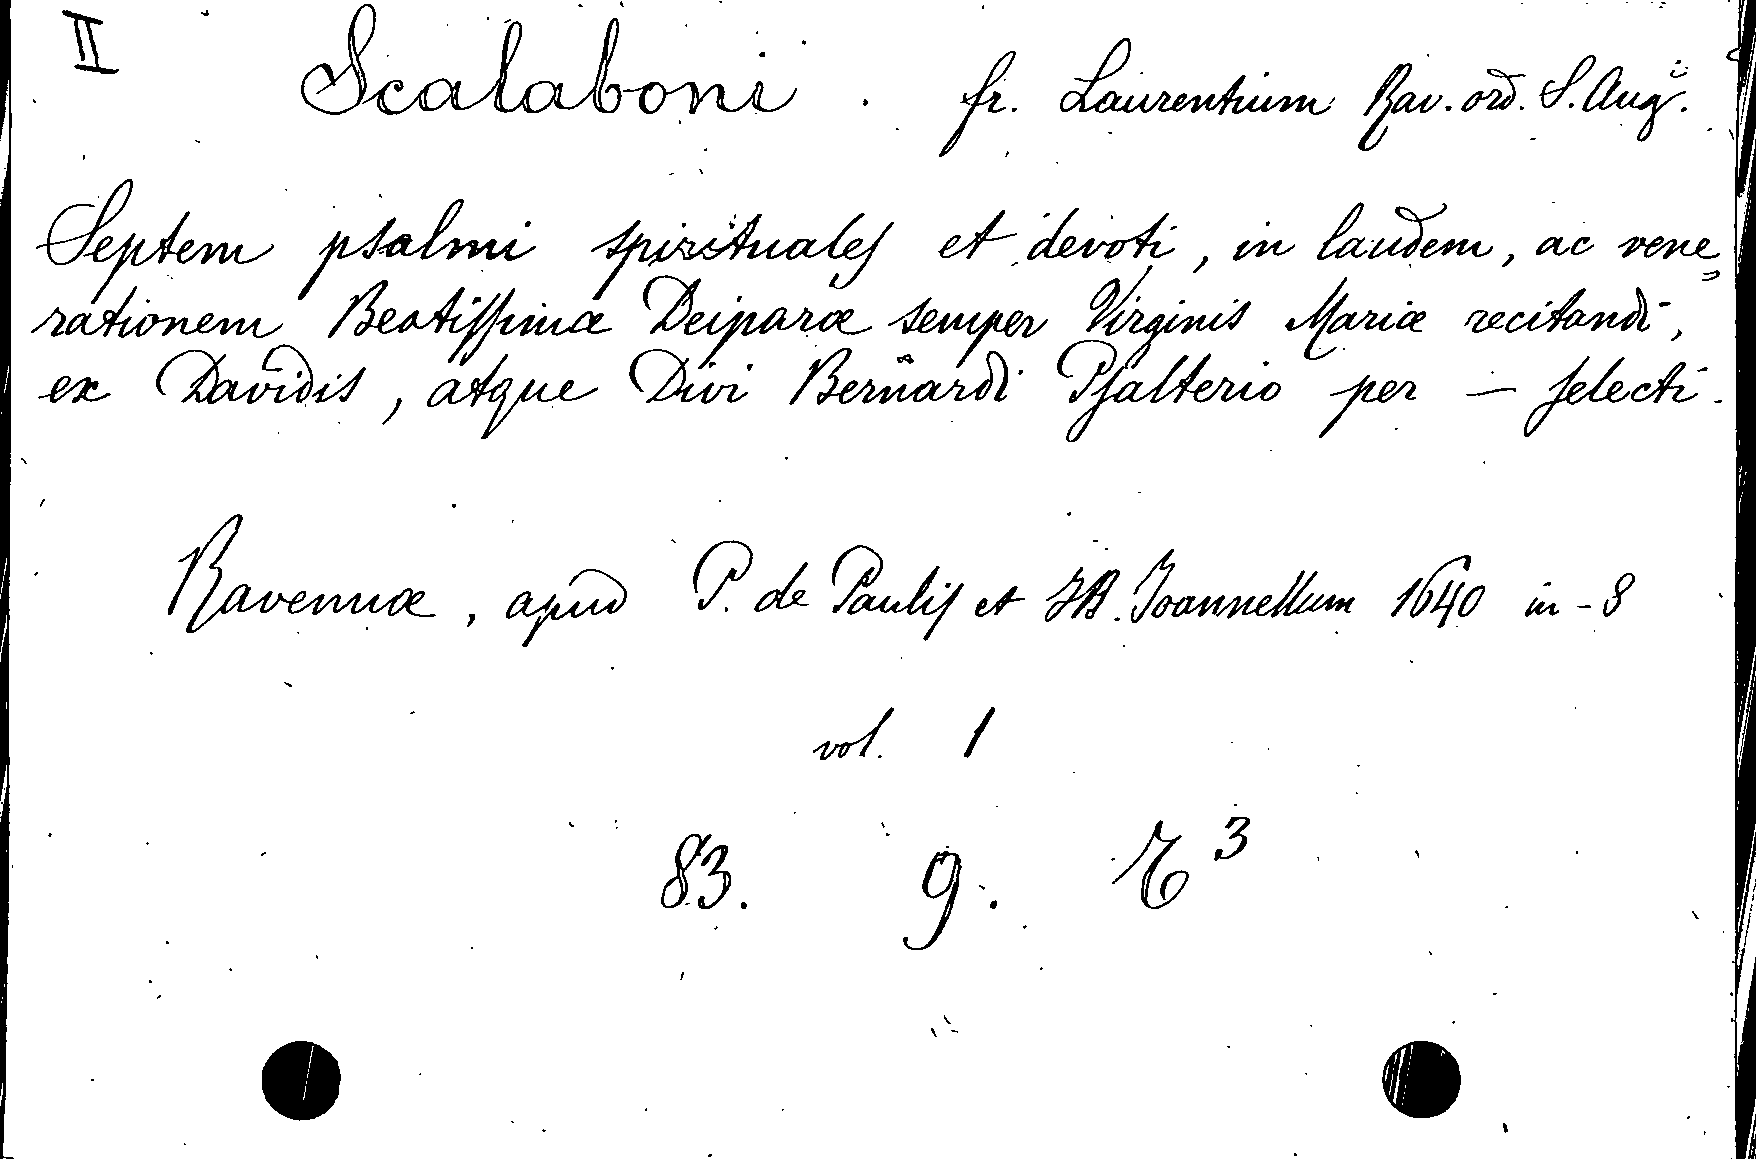 II Scalaboni . fr. Laurentium Rav. ord. S. Aug.
Septem psalmi spirituales et devoti, in laudem, ac vene=
rationem Beatissimæ Deiparæ semper Virginis Mariæ recitandi,
ex Davidis, atque Divi Bernardi Psalterio per — selecti.
Ravennæ, apud P. de Paulis et JB. Joannellum 1640 in-8
vol. 1
83. 9. 3